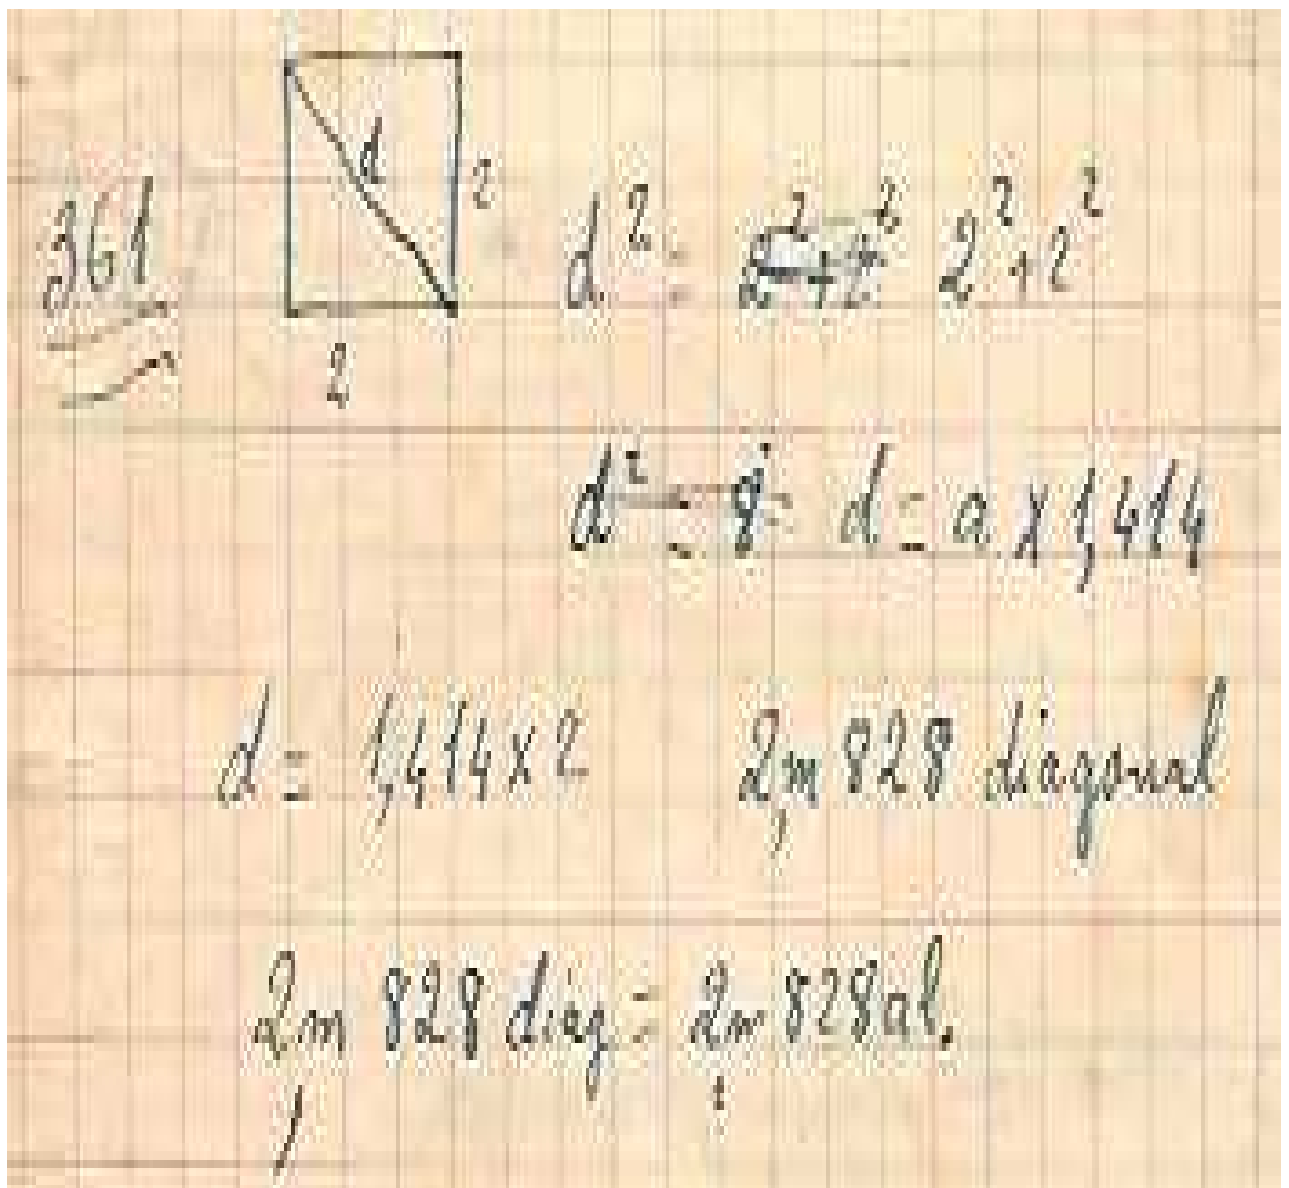 d
2
361
d² = 2² + 2²
2
d² = 8 = d = a x 1,414
d = 1,414 x 2 2,m 828 diagonal
2,m 828 diag = 2,m 828 al.